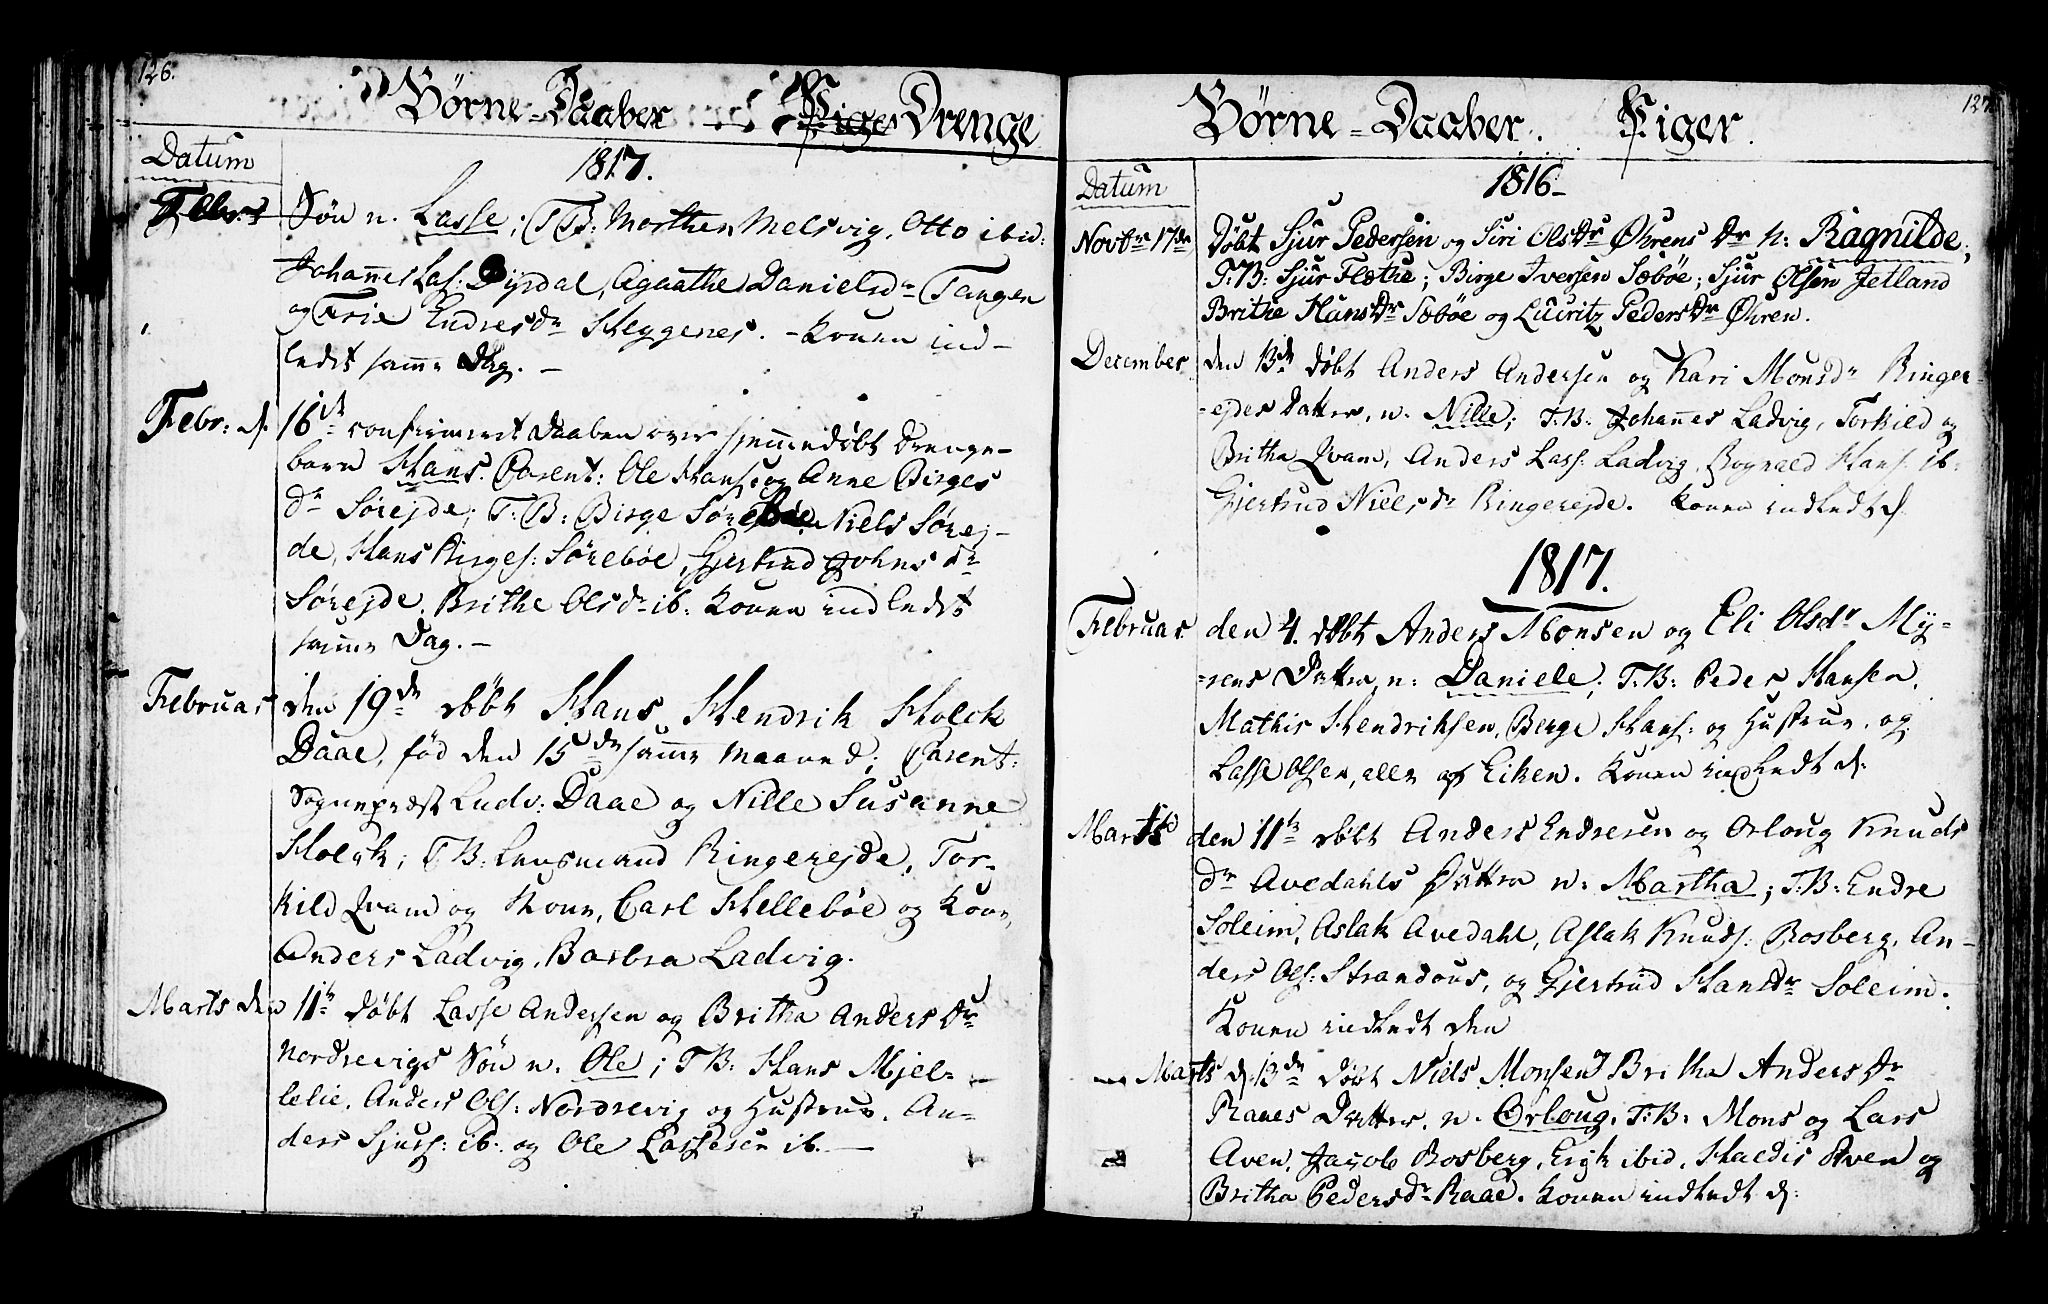 126.
Børne-Daaber Piger Drenge
Datum
1817.
Febr: Søn n. Lasse; TB: Morthen Melsvig, Otto ibid:
Johannes Las: Dysdal, Agaathe Danielsdr Tangen
og Endresdr Heggenes. - Konen ind-
ledet samme Dag. -
Febr: d. 16de confirmeret Daaben over hjemmedøbt Drenge-
barn Hans. Parent: Ole Hans: og Anne Birges
dr Sørejde; T:B: Birge Niels Sørej-
de, Hans Birges: Sørebøe, Gjertrud Johns dr
Sørejde, Brithe Olsdr ib: Konen indledet
samme Dag. -
Februar den 19de døbt Hans Hendrik Holck
Daae, fød den 15de samme Maaned; Parent:
Sognepræst Ludv: Daae og Nille Susanne
Holck; TB: Lensmand Ringerejde, Tor-
kild Qvam og Kone, Carl Hellebøe og Kone,
Anders Ladvig, Barbra Ladvig.
Marts den 11te døbt Lasse Andersen og Britha Anders Dr
Nordrevigs Søn n. Ole; TB: Hans Mjel-
lelie, Anders Ols: Nordrevig og Hustrue, An-
ders Sjurs: ib: og Ole Lassesen ib. -
127.
Børne-Daaber. Piger.
Datum
1816-
Novbr 17de Døbt Sjur Pedersen og Siri OlsDr Øhrens Dr n: Ragnilde;
T:B: Sjur Flæthe; Birge Iversen Sæbøe; Sjur Olsen Jetland
Brithe HansDr Sæbøe og Luciritz PedersDr Øhren.
December den 13de døbt Anders Andersen og Kari Monsdr Ringer-
-ejdes Datter, n. Nille; T:B: Johannes Ladvig, Torkild og
Britha Qvam, Anders Lass: Ladvig, Rognald Hans: ib:
Gjertrud Nielsdr Ringerejde. Konen indledt d:
1817.
Februar den 4. døbt Anders Monsen og Eli Olsdr My-
-rens Datter n: Daniele; T:B: Peder Hansen,
Mathis Hendriksen, Berge Hans: og Hustrue, og
Lasse Olsen, alle af Eiken. Konen indledt d:
Marts den 11te døbt Anders Endresen og Orloug Knuds
dr Avedahls Datter n. Martha; T:B: Endre
Soleim, Aslak Avedahl, Aslak Knuds: Bosberg, An-
ders Ols: Strandous, og Gjertrud Hansdr Soleim.
Konen indledt den
Marts d. 13de døbt Niels Monsen Britha Anders Dr
Ranes Datter, n. Orloug. T:B: Mons og Lars
Aven, Jacob Bosberg, Erik ibid, Haldis Aven og
Britha Pedersdr Raae. Konen indledt d: